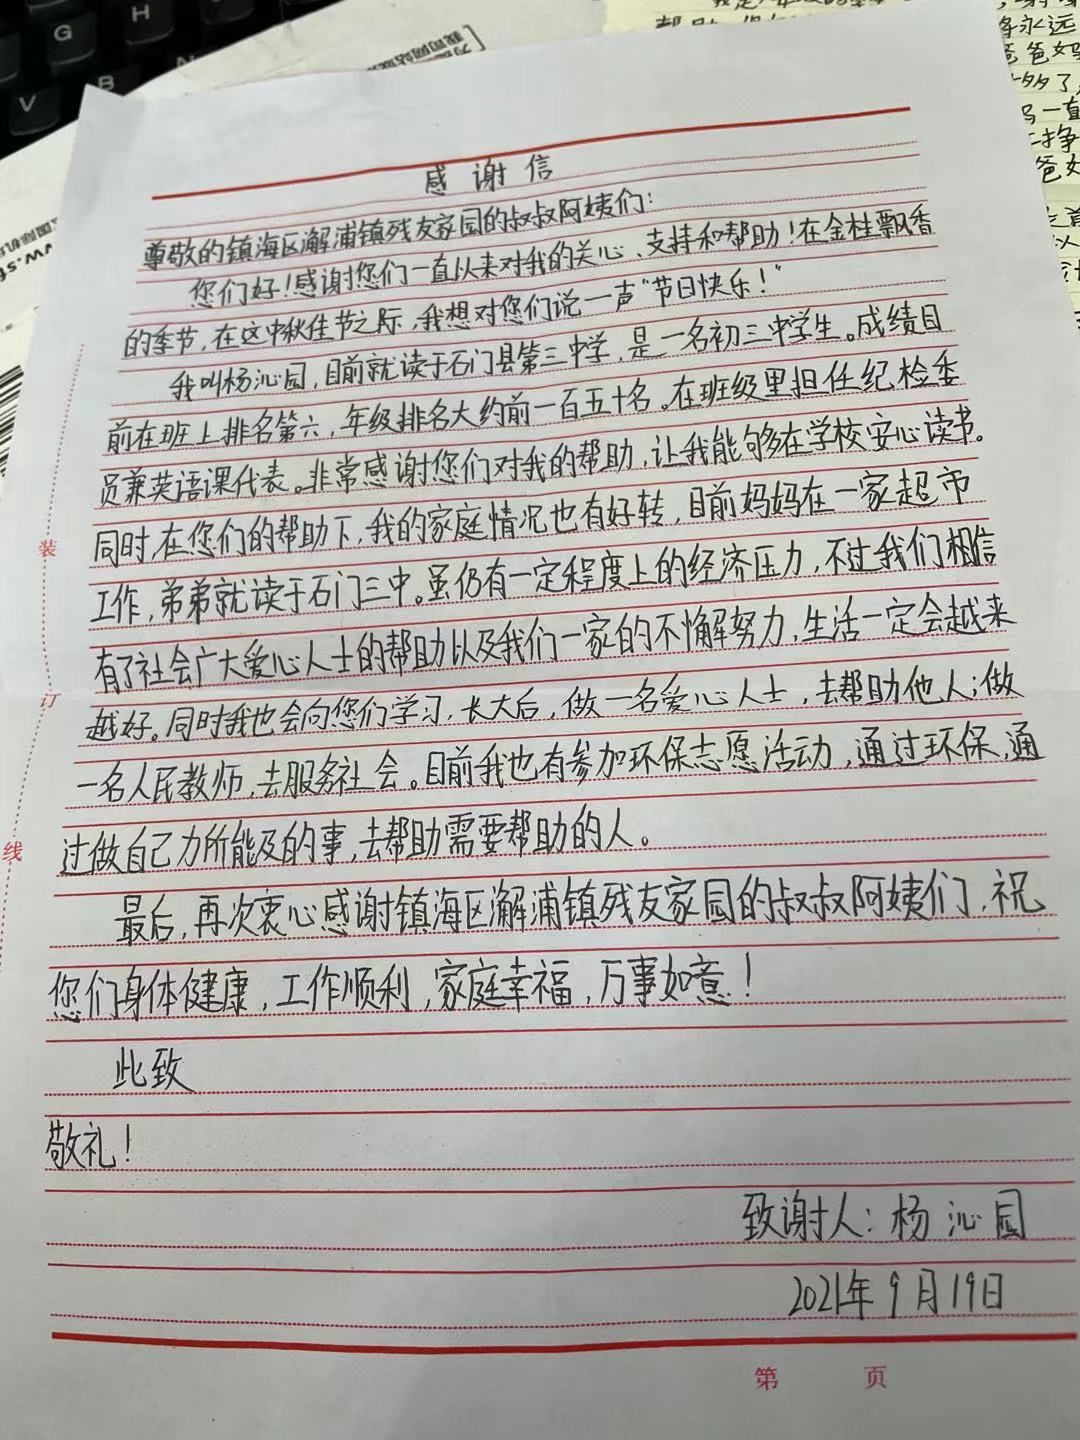 感谢信
尊敬的镇海区澥浦镇残友家园的叔叔阿姨们：
您们好！感谢您们一直以来对我的关心、支持和帮助！在金桂飘香
的季节，在这中秋佳节之际，我想对您们说一声“节日快乐！”
我叫杨沁园，目前就读于石门县第三中学，是一名初三中学生。成绩目
前在班上排名第六，年级排名大约前一百五十名。在班级里担任纪检委
员兼英语课代表。非常感谢您们对我的帮助，让我能够在学校安心读书。
同时，在您们的帮助下，我的家庭情况也有好转，目前妈妈在一家超市
工作，弟弟就读于石门三中。虽仍有一定程度上的经济压力，不过我们相信
有了社会广大爱心人士的帮助以及我们一家的不懈努力，生活一定会越来
越好。同时我也会向您们学习，长大后，做一名爱心人士，去帮助他人；做
一名人民教师，去服务社会。目前我也有参加环保志愿活动，通过环保，通
过做自己力所能及的事，去帮助需要帮助的人。
最后，再次衷心感谢镇海区澥浦镇残友家园的叔叔阿姨们，祝
您们身体健康，工作顺利，家庭幸福，万事如意！
此致
敬礼！
致谢人：杨沁园
2021年9月19日
第 页
装
订
线
G
H
V
B
N
永远
爸爸妈
够了
一直